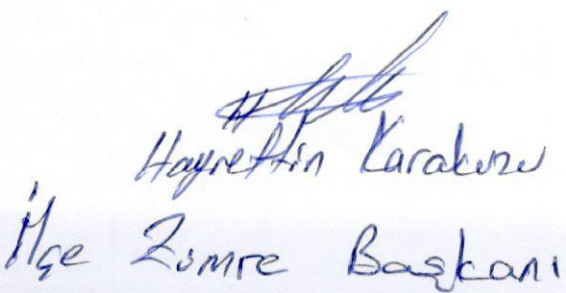 Hayrettin Karakuzu
İlçe Zümre Başkanı